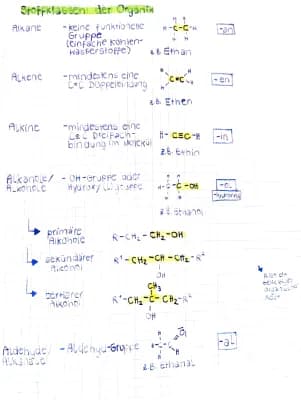 Stoffklassen der Organik
Alkane
-keine funktionelle
Gruppe
(einfache Kohlen-
wasserstoffe)
z.B. Ethan
-an
Alkene
-mindestens eine
C=C Doppelbindung
z.B. Ethen
-en
Alkine
-mindestens eine
C≡C Dreifach-
bindung im Molekül
H-C≡C-H
z.B. Ethin
-in
Alkanole/
Alkohole
-OH-Gruppe oder
Hydroxylgruppe
z.B. Ethanol
-ol
primäre
Alkohole
R-CH₂-CH₂-OH
sekundärer
Alkohol
R¹-CH₂-CH-CH₂-R²
OH
tertiärer
Alkohol
CH₃
R¹-CH₂-C-CH₂-R²
OH
Aldehyde/
Alkanale
-Aldehyd-Gruppe
z.B. Ethanal
-al